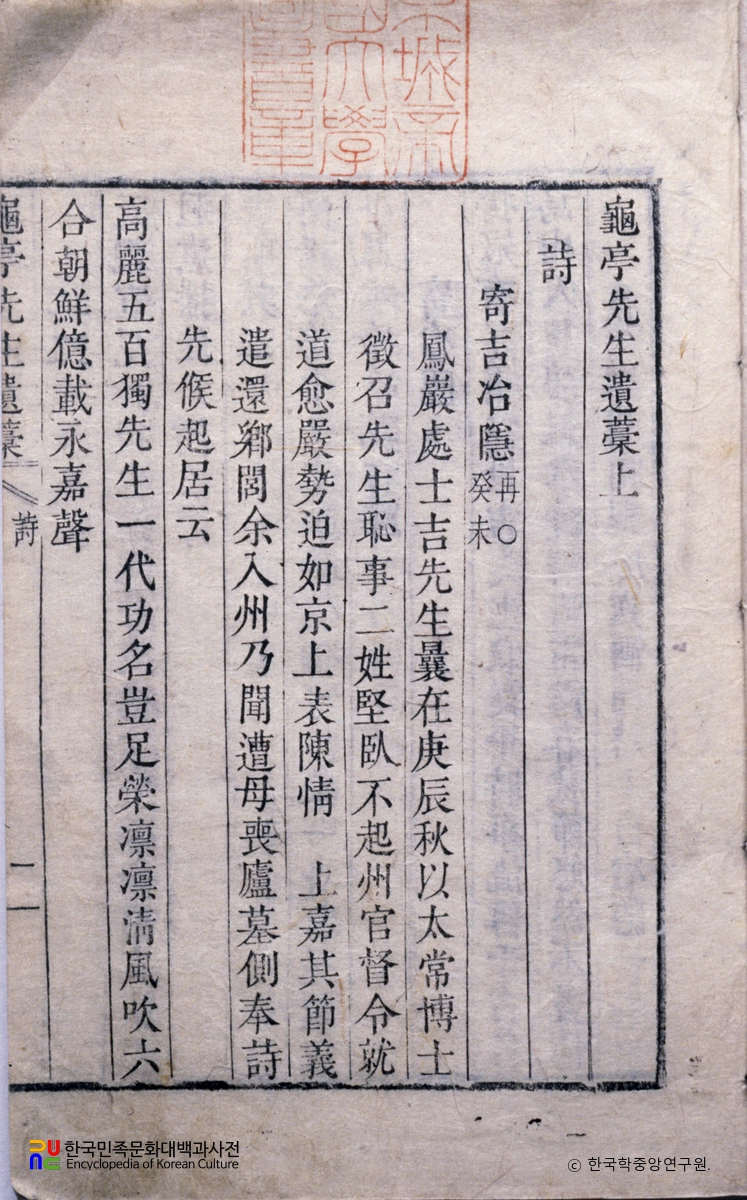 京城帝
國大學
圖書章
龜亭先生遺藁上
詩
寄吉冶隱 再○癸未
鳳巖處士吉先生曩在庚辰秋以太常博士
徵召先生恥事二姓堅臥不起州官督令就
道愈嚴勢迫如京上表陳情 上嘉其節義
遣還鄕閭余入州乃聞遭母喪廬墓側奉詩
先候起居云
高麗五百獨先生一代功名豈足榮凛凛清風吹六
合朝鮮億載永嘉聲
龜亭先生遺藁 詩
한국민족문화대백과사전
Encyclopedia of Korean Culture
ⓒ 한국학중앙연구원.